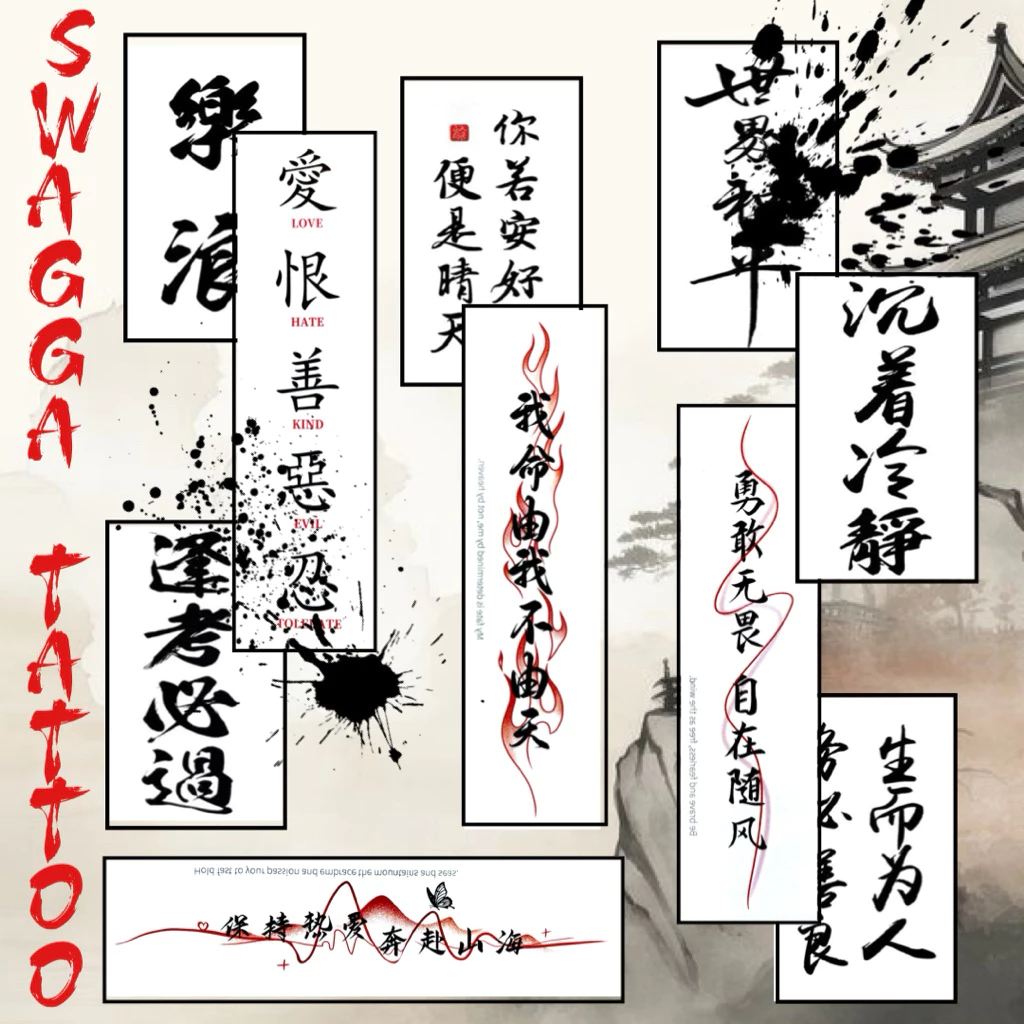 SWAGGA TATTOO
樂浪
愛
LOVE
恨
HATE
善
KIND
惡
EVIL
忍
TOLERATE
你若安好
便是晴天
世界和平
沉着冷靜
逢考必過
我命由我不由天
My fate is determined by me, not by heaven.
勇敢无畏 自在随风
Be brave and fearless, free as the wind.
生而为人
务必善良
Hold fast to your passion and embrace the mountains and seas.
保持热愛 奔赴山海